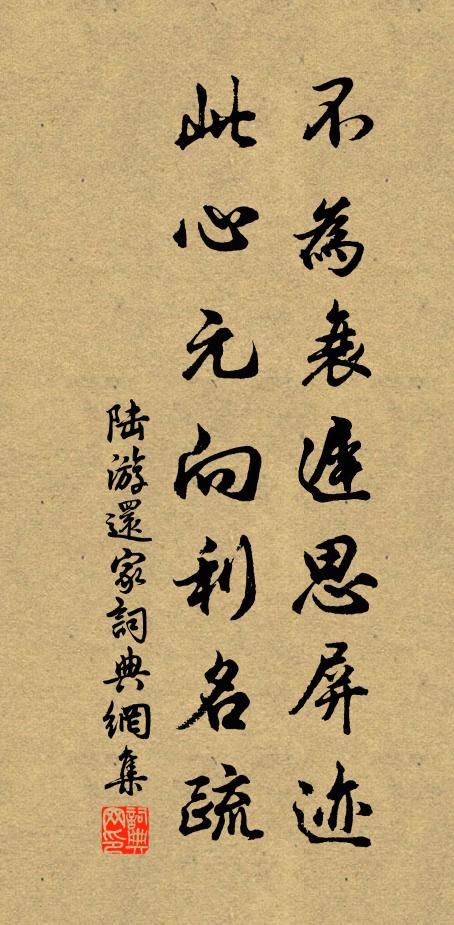 不為衰遲思屏迹
此心元向利名疏
陸游還家詞典網集
詞典网印